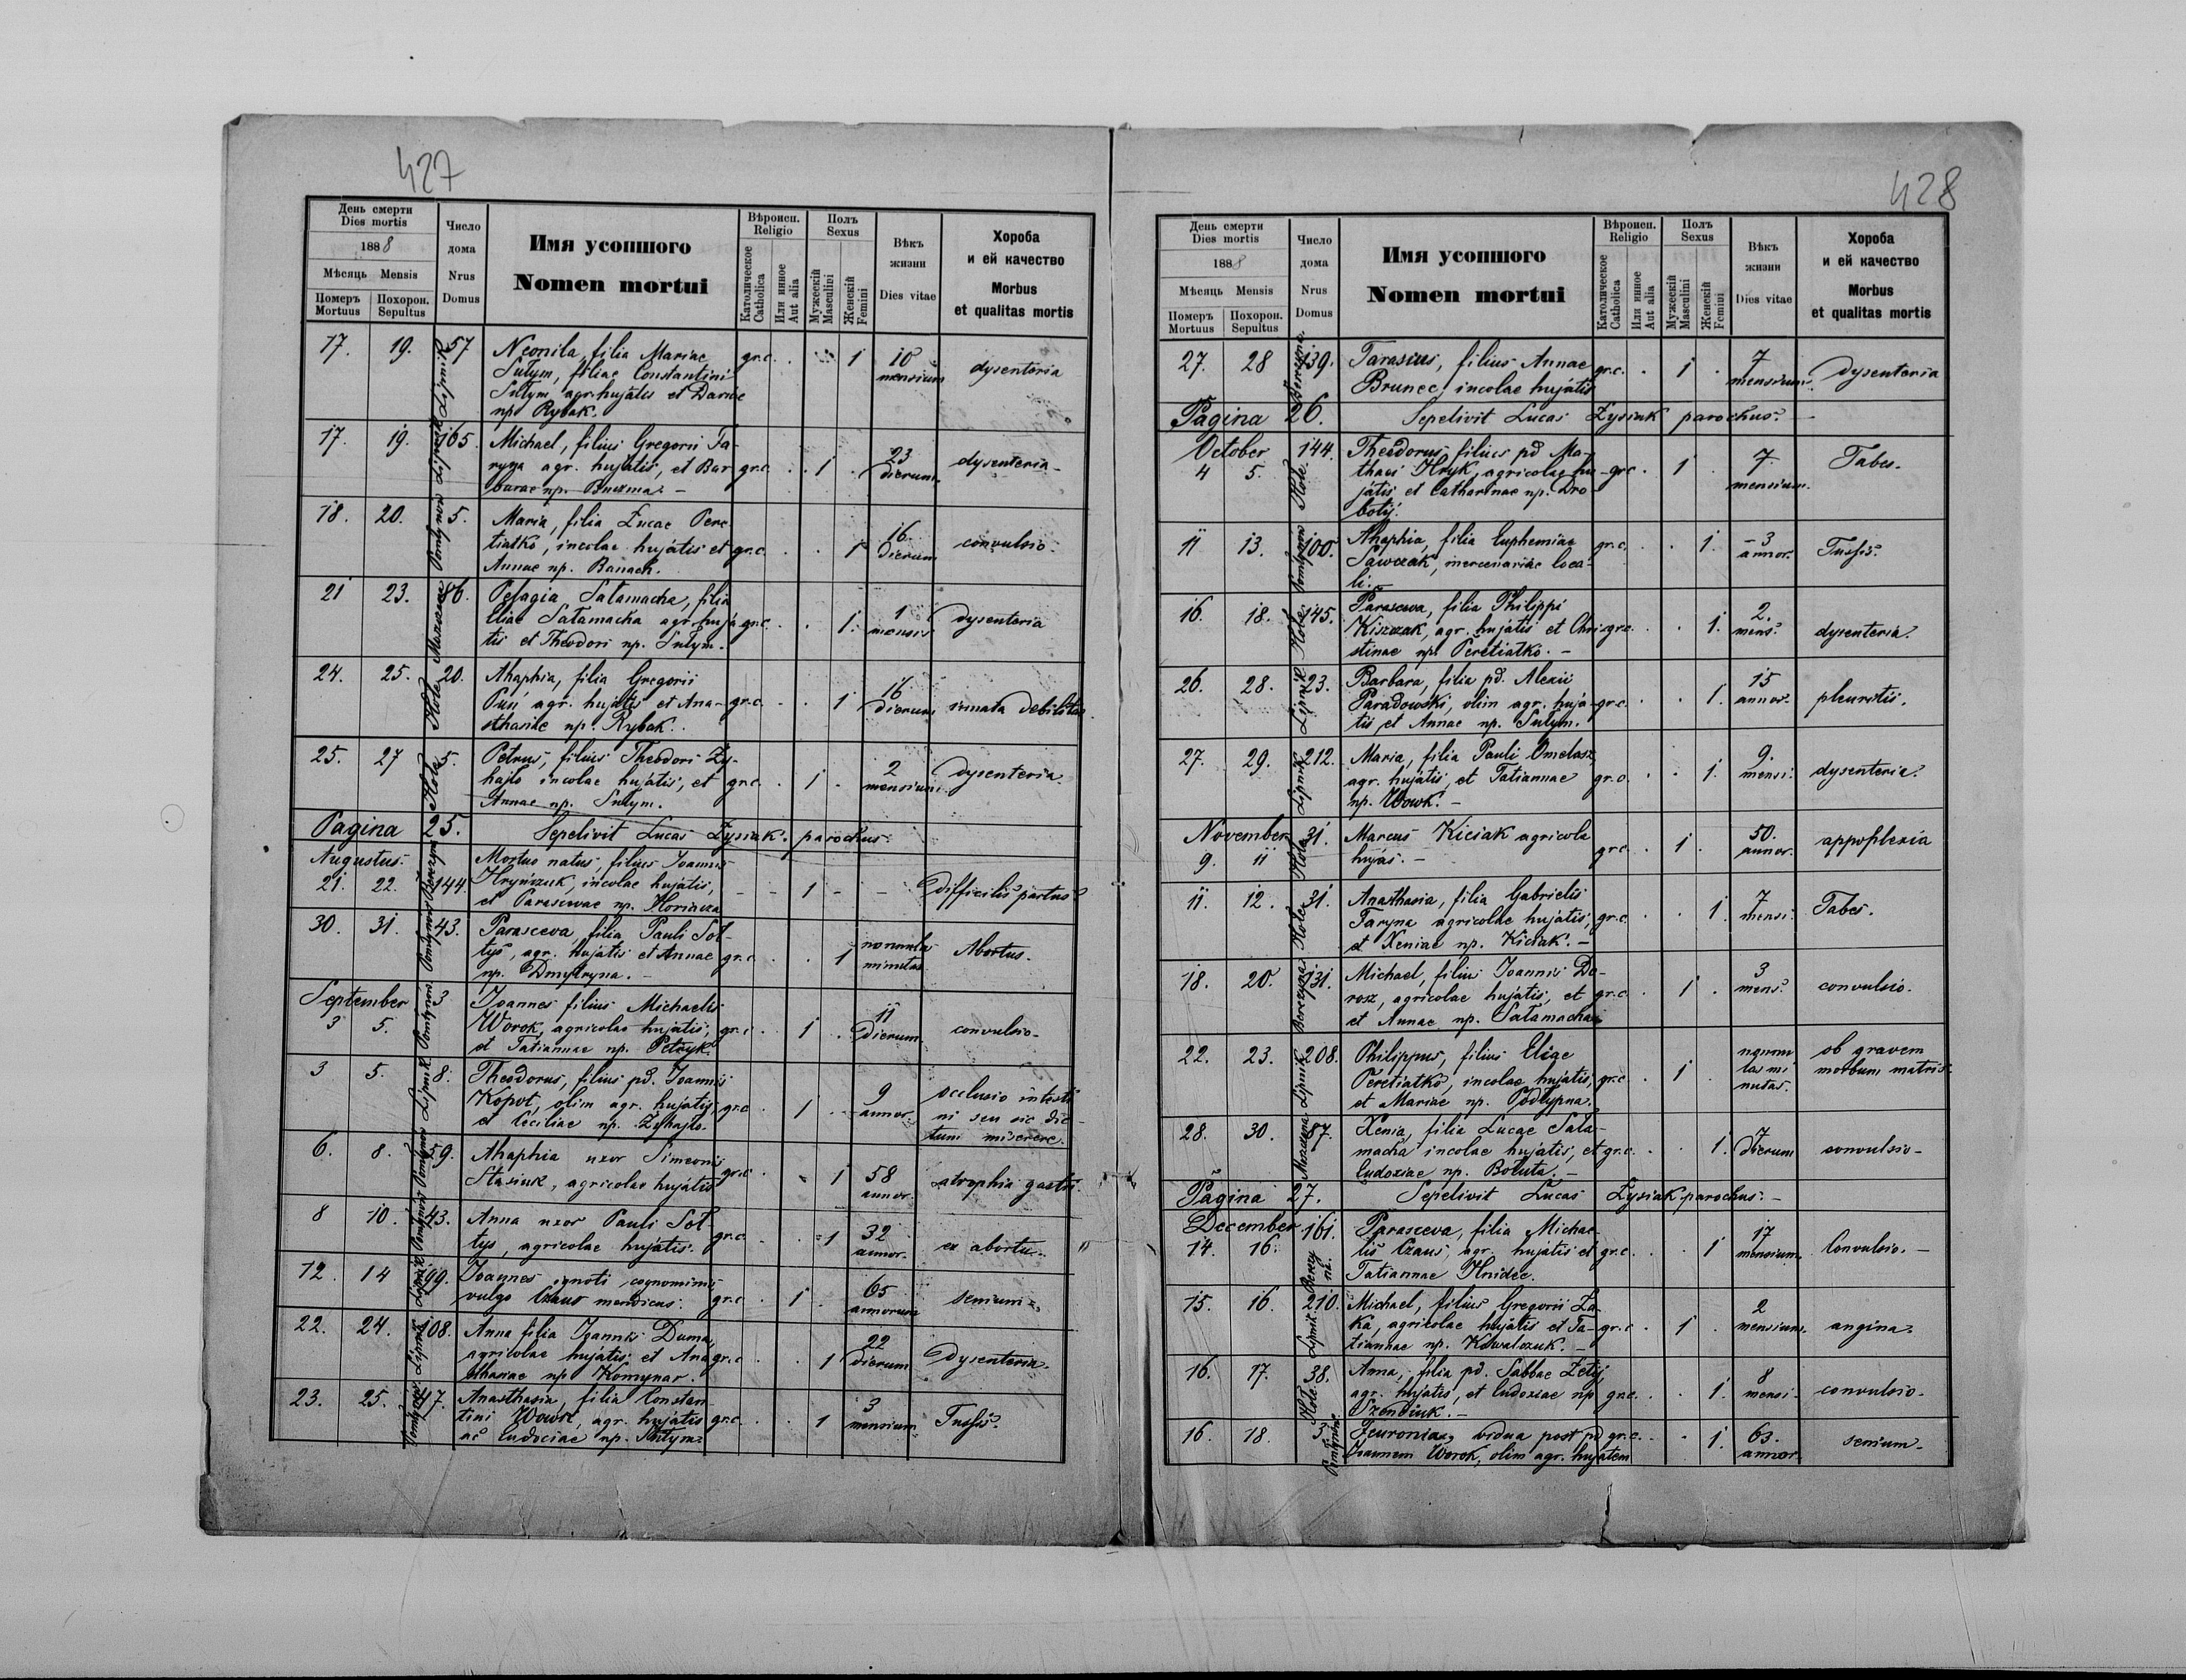 427
День смерти
Dies mortis
1888
Мѣсяць Mensis
Померъ Mortuus
Похорон. Sepultus
Число дома
Nrus Domus
Имя усопшого
Nomen mortui
Вѣроисп.
Religio
Католическое Catholica
Или инное Aut alia
Полъ
Sexus
Мужескій Masculini
Женскій Femini
Вѣкъ жизни
Dies vitae
Хороба
и ей качество
Morbus
et qualitas mortis
17. 19. Lipnik 57 Neonila, filia Mariae gr.c. . 1 10 mensium dysenteria
Sulym, filiae Constantini
Sulym, agr. hujatis et Dariae
np. Rybak.
17. 19. Lipnik 165. Michael, filius Gregorii Ta-
ryna agr. hujatis, et Bar- gr.c. . 1 . 23 dierum dysenteria
barae np. Buczma. –
18. 20. Pomlynow 5. Maria, filia Lucae Pere-
tiatko, incolae hujatis et gr.c. . . 1 16. dierum convulsio
Annae np. Banach.
21 23. 86. Pelagia Satamacha, filia
Eliae Satamacha agr. huja- gr.c. . . 1. 1 mensis dysenteria
tis et Theodori np. Sulym.
24. 25. Hole 20. Ahaphia, filia Gregorii
agr. hujatis et Ana- gr.c. . . 1 16 dierum innata debilitas.
sthasiae np. Rybak.
25. 27 Hola 5. Petrus, filius Theodori Zy-
hajlo incolae hujatis, et gr.c. . 1 . 2 mensium dysenteria.
Annae np. Sulym.
Pagina 25. Sepelivit Lucas Zysiak parochus.
Augustus. Mortuo natus, filius Joannis
21. 22. 144 Hrynczuk, incolae hujatis, – – 1 – – difficilis partus
et Parascevae np.
30. 31. Pomlynow 43. Parasceva, filia Pauli Sol-
tys, agr. hujatis et Annae gr.c. . . 1 nonnulas minutas Abortus.
np. Dmytryna. –
September Pomlynow 3 Joannes filius Michaelis
3 5. Worok, agricolae hujatis, gr.c. . 1 . 11 dierum convulsio
et Tatiannae np. Petryk.
3 5. Lipnik 8. Theodorus, filius pd. Joannis
Kopot, olim agr. hujatis gr.c. . 1 . 9 annor. occlusio intesti-
et Ceciliae np. Zyhajlo. ni seu sic dic-
tum miserere.
6. 8. Pomlynow 59. Ahaphia uxor Simeonis
Stasiuk, agricolae hujatis gr.c. . . 1 58 annor. atrophia gastri.
8 10. Pomlynow 43. Anna uxor Pauli Sol-
tys, agricolae hujatis. gr.c. . . 1 32 annor. ex abortu.
12. 14 Lipnik 99. Joannes ignoti cognominis
vulgo Czaus mendicus. gr.c. . 1 . 65 annorum senium
22. 24. Lipnik 108. Anna filia Joannis Duma,
agricolae hujatis et Ana- gr.c. . . 1 22 dierum Dysenteria.
sthasiae np Komynar.
23. 25. Pomlynow 47. Anasthasia, filia Constan-
tini Wowk, agr. hujatis gr.c. . . 1 3 mensium Tussis.
ac Eudociae np. Sulym
428
День смерти
Dies mortis
1888
Мѣсяць Mensis
Померъ Mortuus
Похорон. Sepultus
Число дома
Nrus Domus
Имя усопшого
Nomen mortui
Вѣроисп.
Religio
Католическое Catholica
Или инное Aut alia
Полъ
Sexus
Мужескій Masculini
Женскій Femini
Вѣкъ жизни
Dies vitae
Хороба
и ей качество
Morbus
et qualitas mortis
27. 28 Berezyna. 139. Tarasius, filius Annae gr.c. . 1 . 7 mensium. Dysenteria
Brunec, incolae hujatis
Pagina 26. Sepelivit Lucas Zysiak parochus. –
October 144. Theodorus, filius pd Ma-
4 5. Hole thaei Hryk, agricolae hu- gr.c . 1 . 7. mensium. Tabes.
jatis et Catharinae np. Dro-
botij.
11 13. Pomlynow 100. Ahaphia, filia Euphemiae gr.c. . . 1. 3 annor. Tussis.
Sawczak, mercenariae loca-
li. –
16. 18. Hole 145. Parasceva, filia Philippi
Kiszczak, agr. hujatis et Chri- gr.c. . . 1. 2. mens. dysenteria.
stinae np. Peretiatko. –
26. 28. Lipnik 23. Barbara, filia pd. Alexii
Paradowski, olim agr. huja- gr.c. . . 1. 15 annor. pleuritis.
tis et Annae np. Sulym.
27. 29. Lipnik 212. Maria, filia Pauli Omelasz
agr. hujatis, et Tatiannae gr.c. . . 1. 9. mensi. dysenteria.
np. Wowk. –
November Hola 31. Marcus Kiciak agricola
9. 11 hujas. – gr.c. . 1 . 50. annor. appoplexia
11. 12. Hole 31. Anasthasia, filia Gabrielis
Taryna agricolae hujatis, gr.c. . . 1. 7 mensi. Tabes.
et Xeniae np. Kiciak. –
18. 20. Berezyna 131. Michael, filius Joannis Do-
rosz, agricolae hujatis, et gr.c. . 1 . 3 mens. convulsio.
et Annae np. Satamacha
22. 23. Lipnik 208. Philippus, filius Eliae
Peretiatko, incolae hujatis, gr.c. . 1 . minutas. ob gravem
et Mariae np. Podlypna. morbum matris.
28. 30. 87. Xenia, filia Lucae Sata-
macha incolae hujatis, et gr.c. . . 1. 7 dierum convulsio
Eudoxiae np. Boluta. –
Pagina 27. Sepelivit Lucas Zysiak parochus. –
December 161. Parasceva, filia Michae-
14. 16. lis Czaus, agr. hujatis et gr.c. . . 1 17 mensium. Convulsio. –
Tatiannae Hnidec.
15. 16. Lipnik 210. Michael, filius Gregorii Za-
ka, agricolae hujatis et Ta- gr.c . 1 . 2 mensium. angina.
tiannae np. Kowalczuk. –
16. 17. Hole 38. Anna, filia pd. Sabbae Zetij,
agr. hujatis, et Eudoxiae np gr.c. . . 1. 8 mensi. convulsio.
Szendiuk. –
16. 18. Pomlynow 3. Feuronia, vidua post pd gr.c. . . 1. 63. annor. senium.
Joannem Worok, olim agr. hujatem